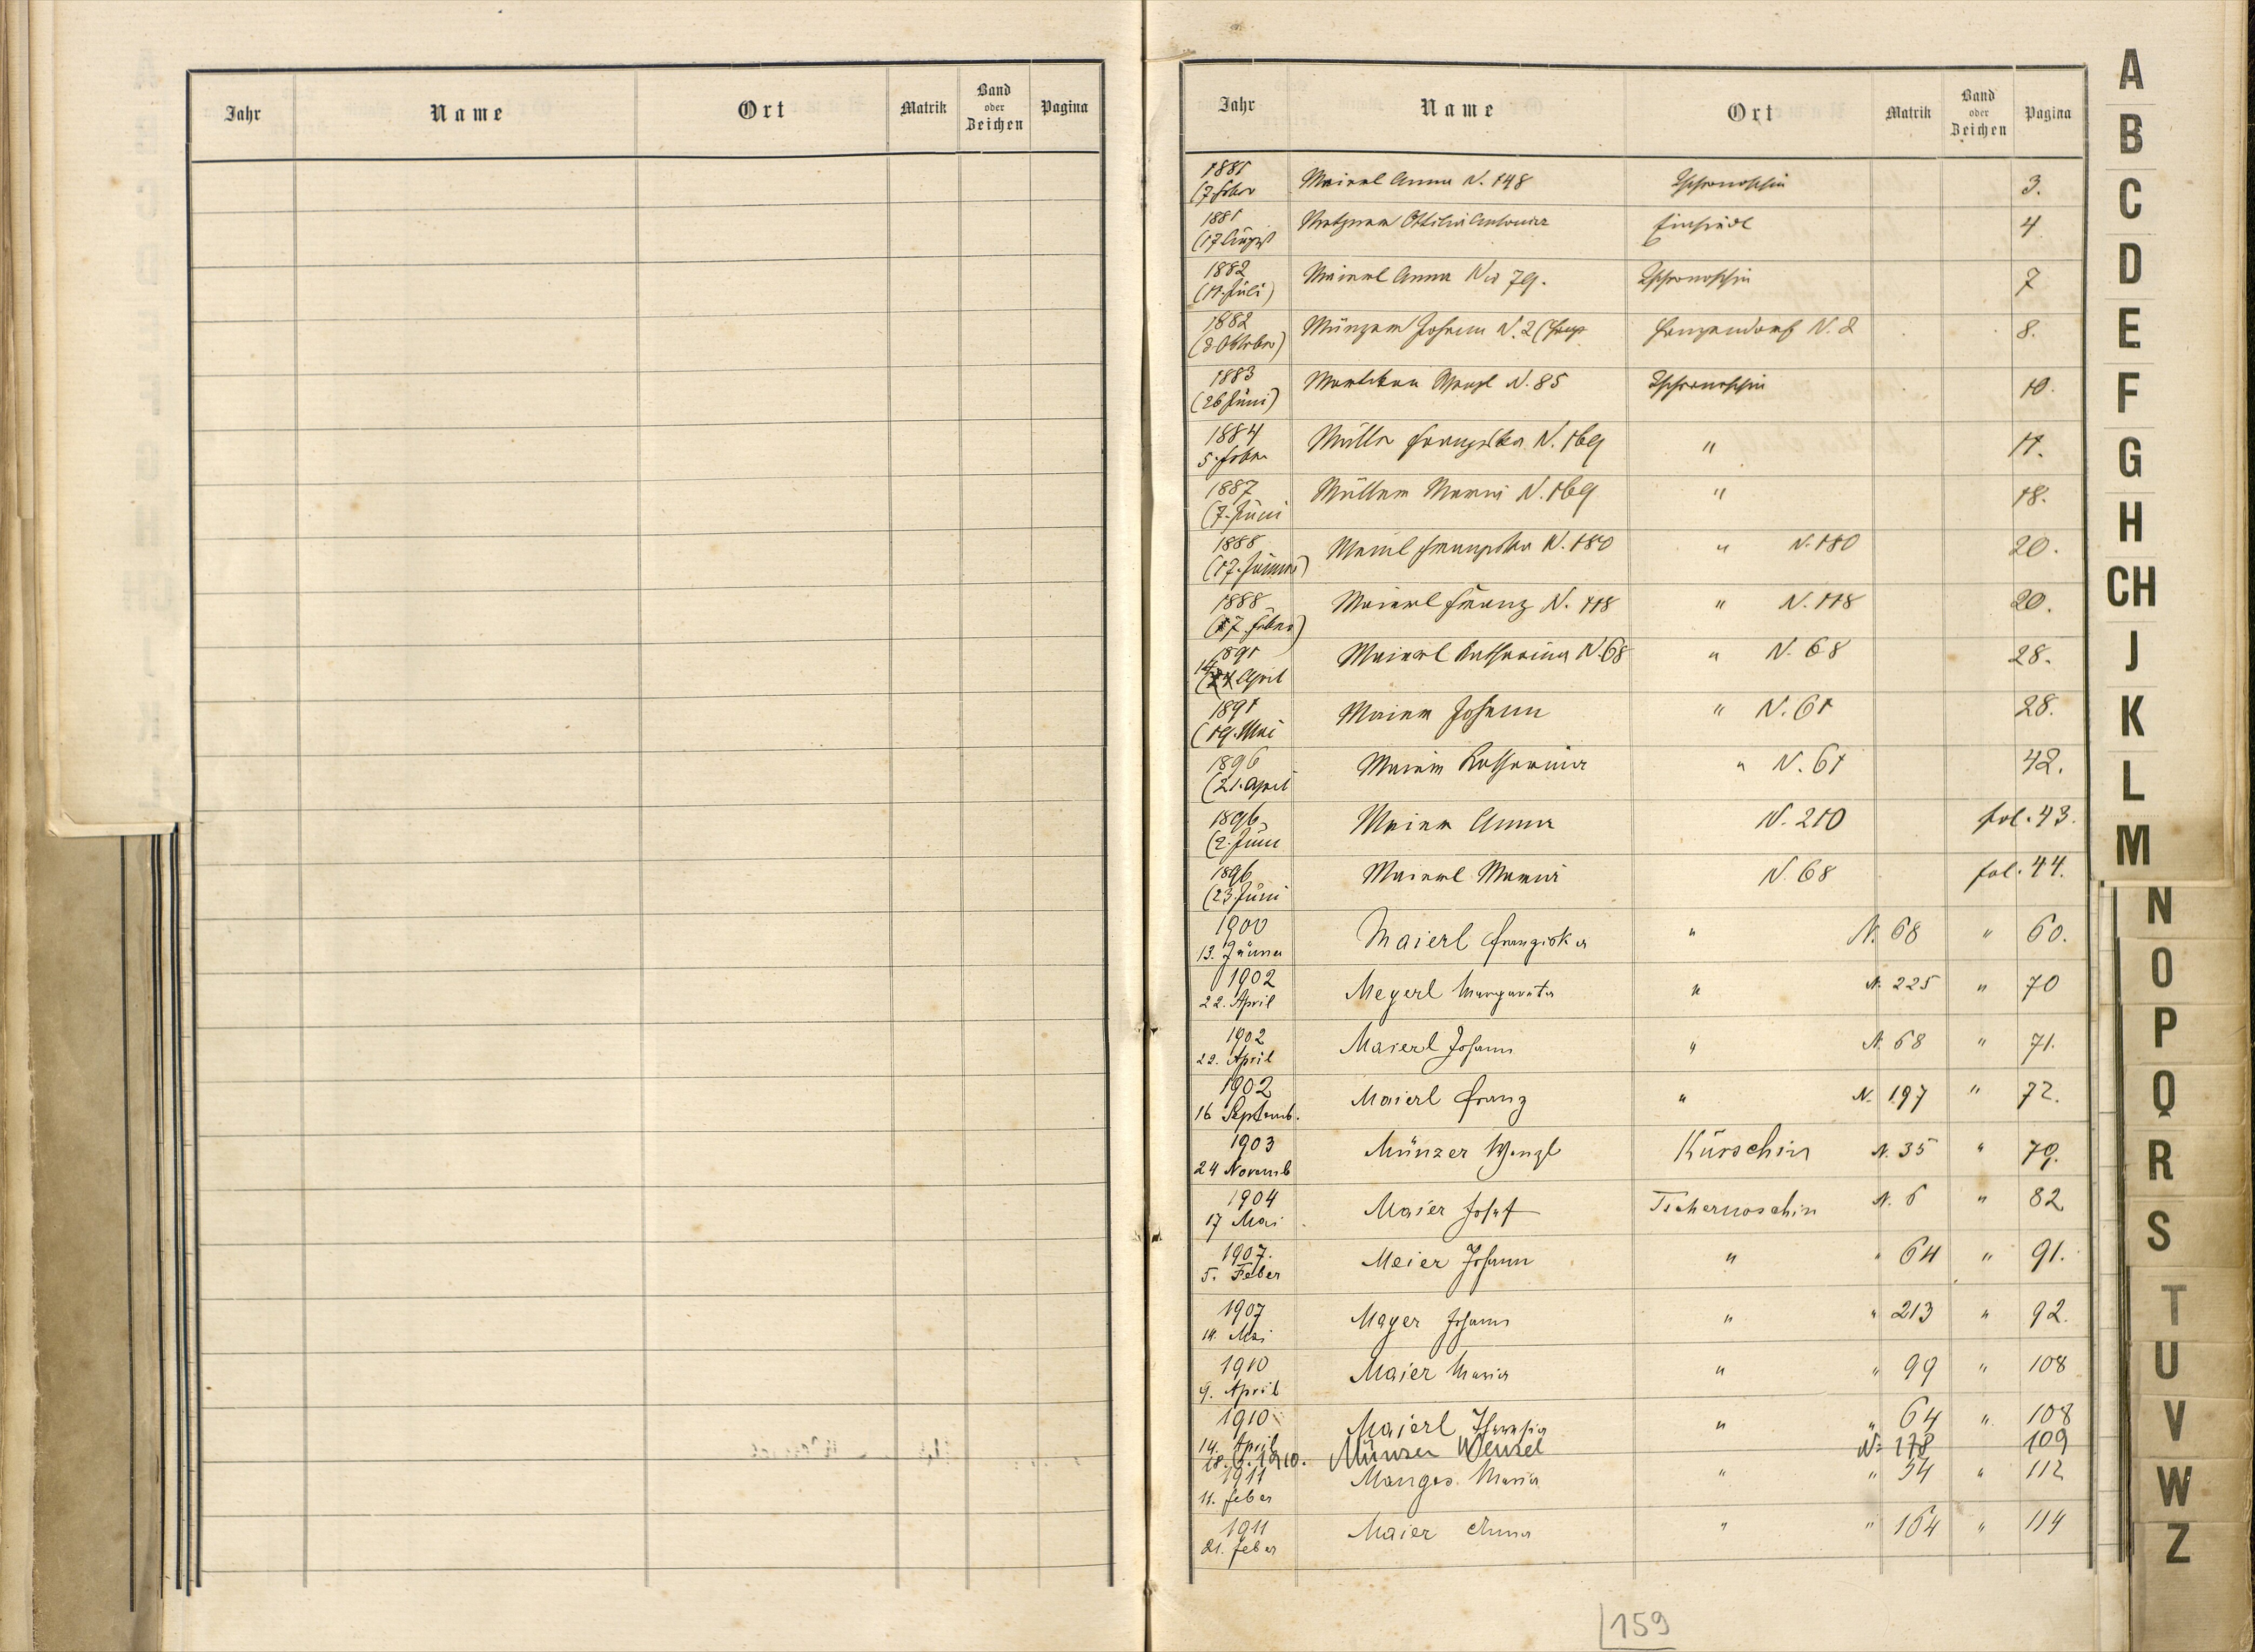 Jahr Name Ort Matrik Band oder Zeichen Pagina
Jahr Name Ort Matrik Band oder Zeichen Pagina
1881 (7. Feber Maierl Anna N. 148 Tschernoschin 3.
1881 (17 August Ottilia Antonia Einsiedl 4
1882 (11. Juli) Maierl Anna No 79. Tschernoschin 7
1882 (3 Oktober) Münzer Johann N. 2 N. 2 8.
1883 (26 Juni) Wenzl N. 85 Tschernoschin 10.
1884 5. Feber Müller Franziska N. 169 " 11.
1887 (7. Juni Müller Maria N. 169 " 18.
1888 (17. Jänner) Maierl Franziska N. 180 " N. 180 20.
1888 (17. Feber) Maierl Franz N. 118 " N. 118 20.
1891 14 April Maierl Katharina N. 68 " N. 68 28.
1891 (19. Mai Maier Johann " N. 61 28.
1896 (21. April Maier Katharina " N. 61 42.
1896 (2. Juni Maier Anna N. 210 fol. 43.
1896 (23. Juni Maierl Maria N. 68 fol. 44.
1900 13. Jänner Maierl Franziska " N. 68 " 60.
1902 22. April Meyerl Margareta " N. 225 " 70
1902 22. April Maierl Johann " N. 68 " 71.
1902 16 Septemb. Maierl Franz " N. 197 " 72.
1903 24 Novemb Münzer Wenzl Kürschin N. 35 " 79.
1904 17 Mai Maier Josef Tschernoschin N. 6 " 82
1907. 5. Feber Meier Johann " " 64 " 91.
1907 14. Mai Mayer Johann " " 213 " 92.
1910 9. April Maier Maria " " 99 " 108
1910 14. April Maierl Theresia " " 64 " 108
18. 6. 1910. Münzer Wenzel N. 178 109
1911 11. Feber Manges Maria " " 54 " 112
1911 21. Feber Maier Anna " " 164 " 114
159
A
B
C
D
E
F
G
H
CH
J
K
L
M
N
O
P
Q
R
S
T
U
V
W
Z